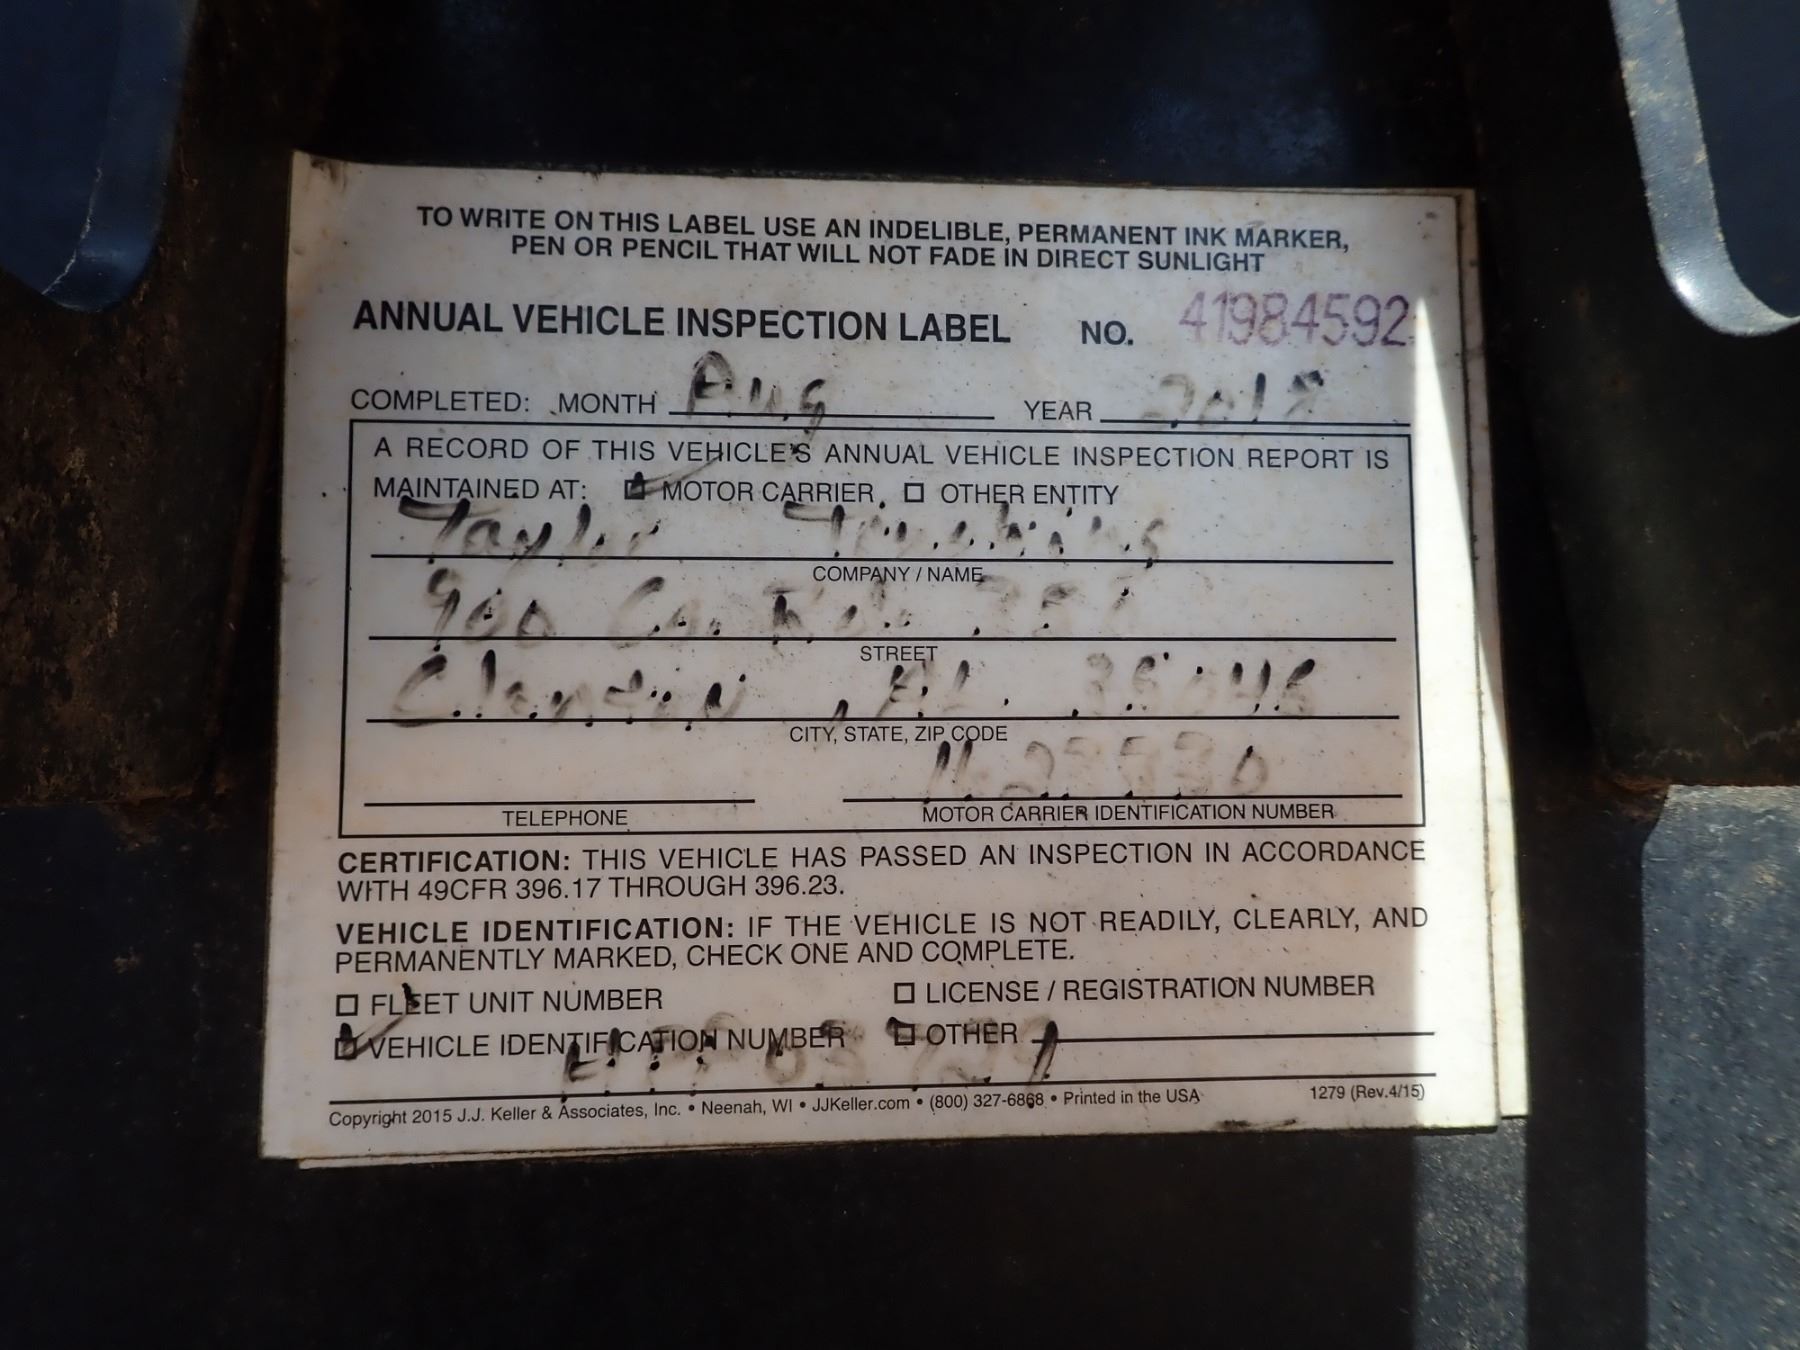 TO WRITE ON THIS LABEL USE AN INDELIBLE, PERMANENT INK MARKER,
PEN OR PENCIL THAT WILL NOT FADE IN DIRECT SUNLIGHT
ANNUAL VEHICLE INSPECTION LABEL NO. 41984592
COMPLETED: MONTH Aug YEAR 2018
A RECORD OF THIS VEHICLE'S ANNUAL VEHICLE INSPECTION REPORT IS
MAINTAINED AT: MOTOR CARRIER, OTHER ENTITY
Taylor Trucking
COMPANY / NAME
900 Co. Rd.
STREET
Clanton, AL.
CITY, STATE, ZIP CODE
TELEPHONE MOTOR CARRIER IDENTIFICATION NUMBER
CERTIFICATION: THIS VEHICLE HAS PASSED AN INSPECTION IN ACCORDANCE
WITH 49CFR 396.17 THROUGH 396.23.
VEHICLE IDENTIFICATION: IF THE VEHICLE IS NOT READILY, CLEARLY, AND
PERMANENTLY MARKED, CHECK ONE AND COMPLETE.
FLEET UNIT NUMBER LICENSE / REGISTRATION NUMBER
VEHICLE IDENTIFICATION NUMBER OTHER
Copyright 2015 J.J. Keller & Associates, Inc. • Neenah, WI • JJKeller.com • (800) 327-6868 • Printed in the USA 1279 (Rev.4/15)